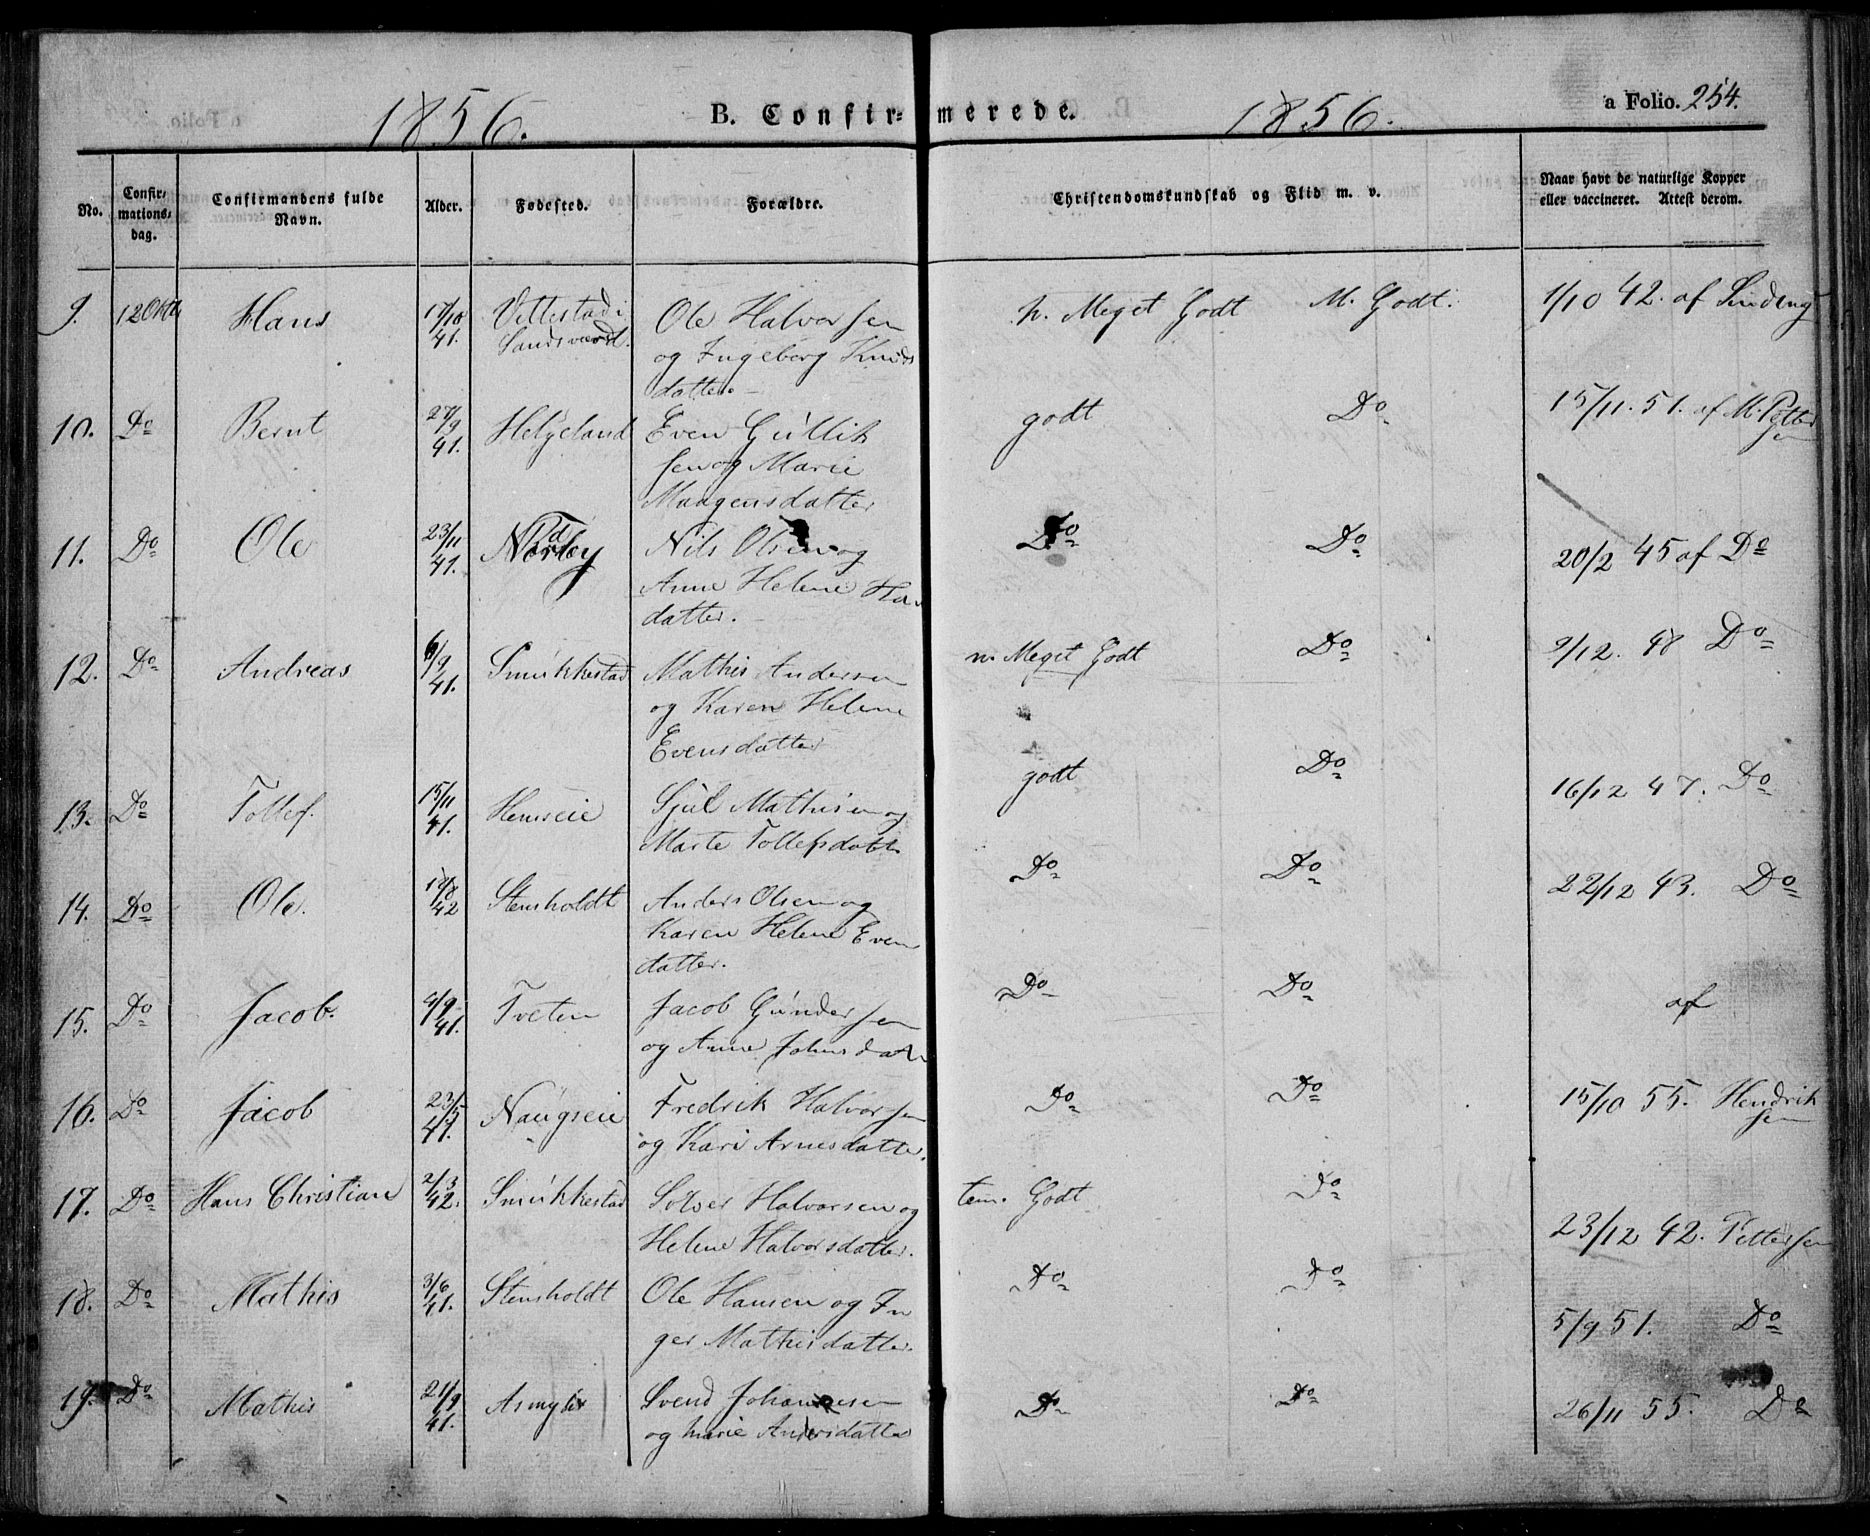 1856. B. Confirmerede. 1856. a Folio. 254.
No. Confirmationsdag. Confirmandens fulde Navn. Alder. Fødested. Forældre. Christendomskundskab og Flid m. v. Naar havt de naturlige Kopper eller vaccineret. Attest derom.
9. 12 Okt Hans 17/10 41. Vettestad i Ole Halvorsen n. Meget Godt M. Godt. 1/10 42. af Sinding
Sandsværd.
og Ingeborg Knuds
datter.
10. Do Bernt 27/9 41. Helgeland Even Gullik godt Do 15/11. 51. af M. Petter
sen
sen og Marie
Maagensdatter
11. Do Ole 23/11 41. Nils Olsen og Do Do 20/2 45 af Do
Anne Helene
datter.
12. Do Andreas 6/9 41. Smukkestad Mathis Andersen n. Meget Godt Do 2/12. 48 Do
og Karen Helene
Evensdatter
13. Do Tollef. 15/11 41. Hemseie Sjul Mathisen og godt Do 16/12 47. Do
Marte Tollefsdatt
14. Do Ole. 18/8 42 Stensholdt Anders Olsen og Do Do 22/12 43. Do
Karen Helene Even
datter.
15. Do Jacob. 4/9 41. Tveten Jacob Gundersen Do Do af
og Anne Johnsdat
16. Do Jacob 23/5 41. Naugseie Fredrik Halvorsen Do Do 15/10 55. Hendrik
sen
og Kari Arnesdatter.
17. Do Hans Christian 2/3 42. Smukkestad Solver Halvorsen og tem. Godt Do 23/12 42. Pettersen
Helene Halvorsdatter.
18. Do Mathis 3/6 41. Stensholdt Ole Hansen og In Do Do 5/9 51. Do
ger Mathisdatter.
19. Do Mathis 21/9 41. Asmyhr Svend Johannesen Do Do 26/11 55. Do
og Marie Andersdatter